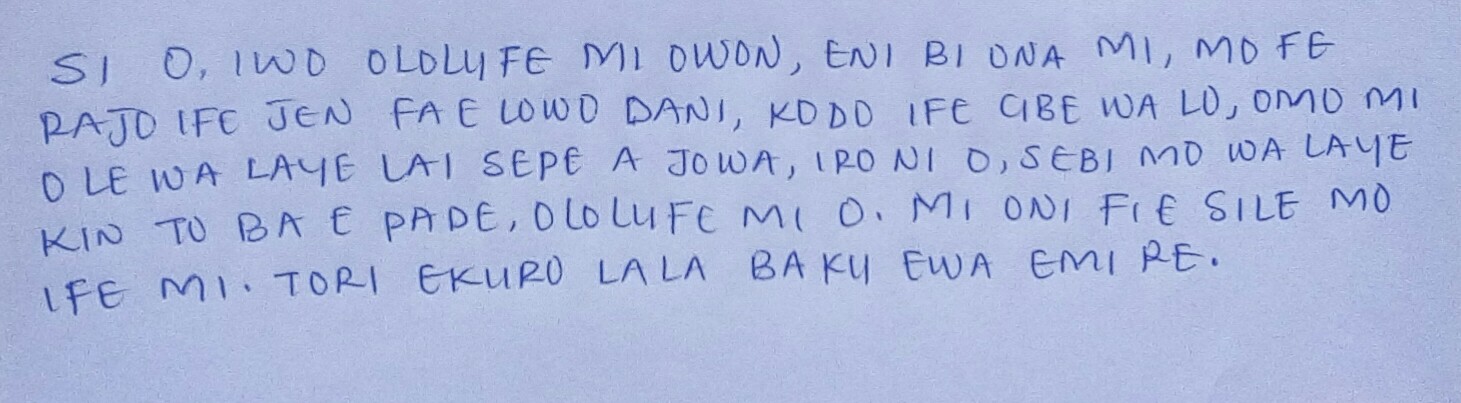 SI O, IWO OLOLUFE MI OWON, ENI BI ONA MI, MO FE
RAJO IFE JEN FA E LOWO DANI, KODO IFE GBE WA LO, OMO MI
O LE WA LAYE LAI SEPE A JOWA, IRO NI O, SEBI MO WA LAYE
KIN TO BA E PADE, OLOLUFE MI O. MI ONI FI E SILE MO
IFE MI. TORI EKURO LALA BA KU EWA EMI RE.